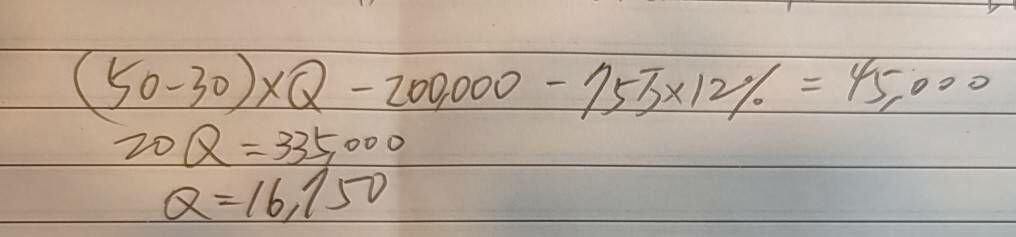 (50-30)×Q -200,000 - 75万×12% = 45,000
20Q=335,000
Q=16,750